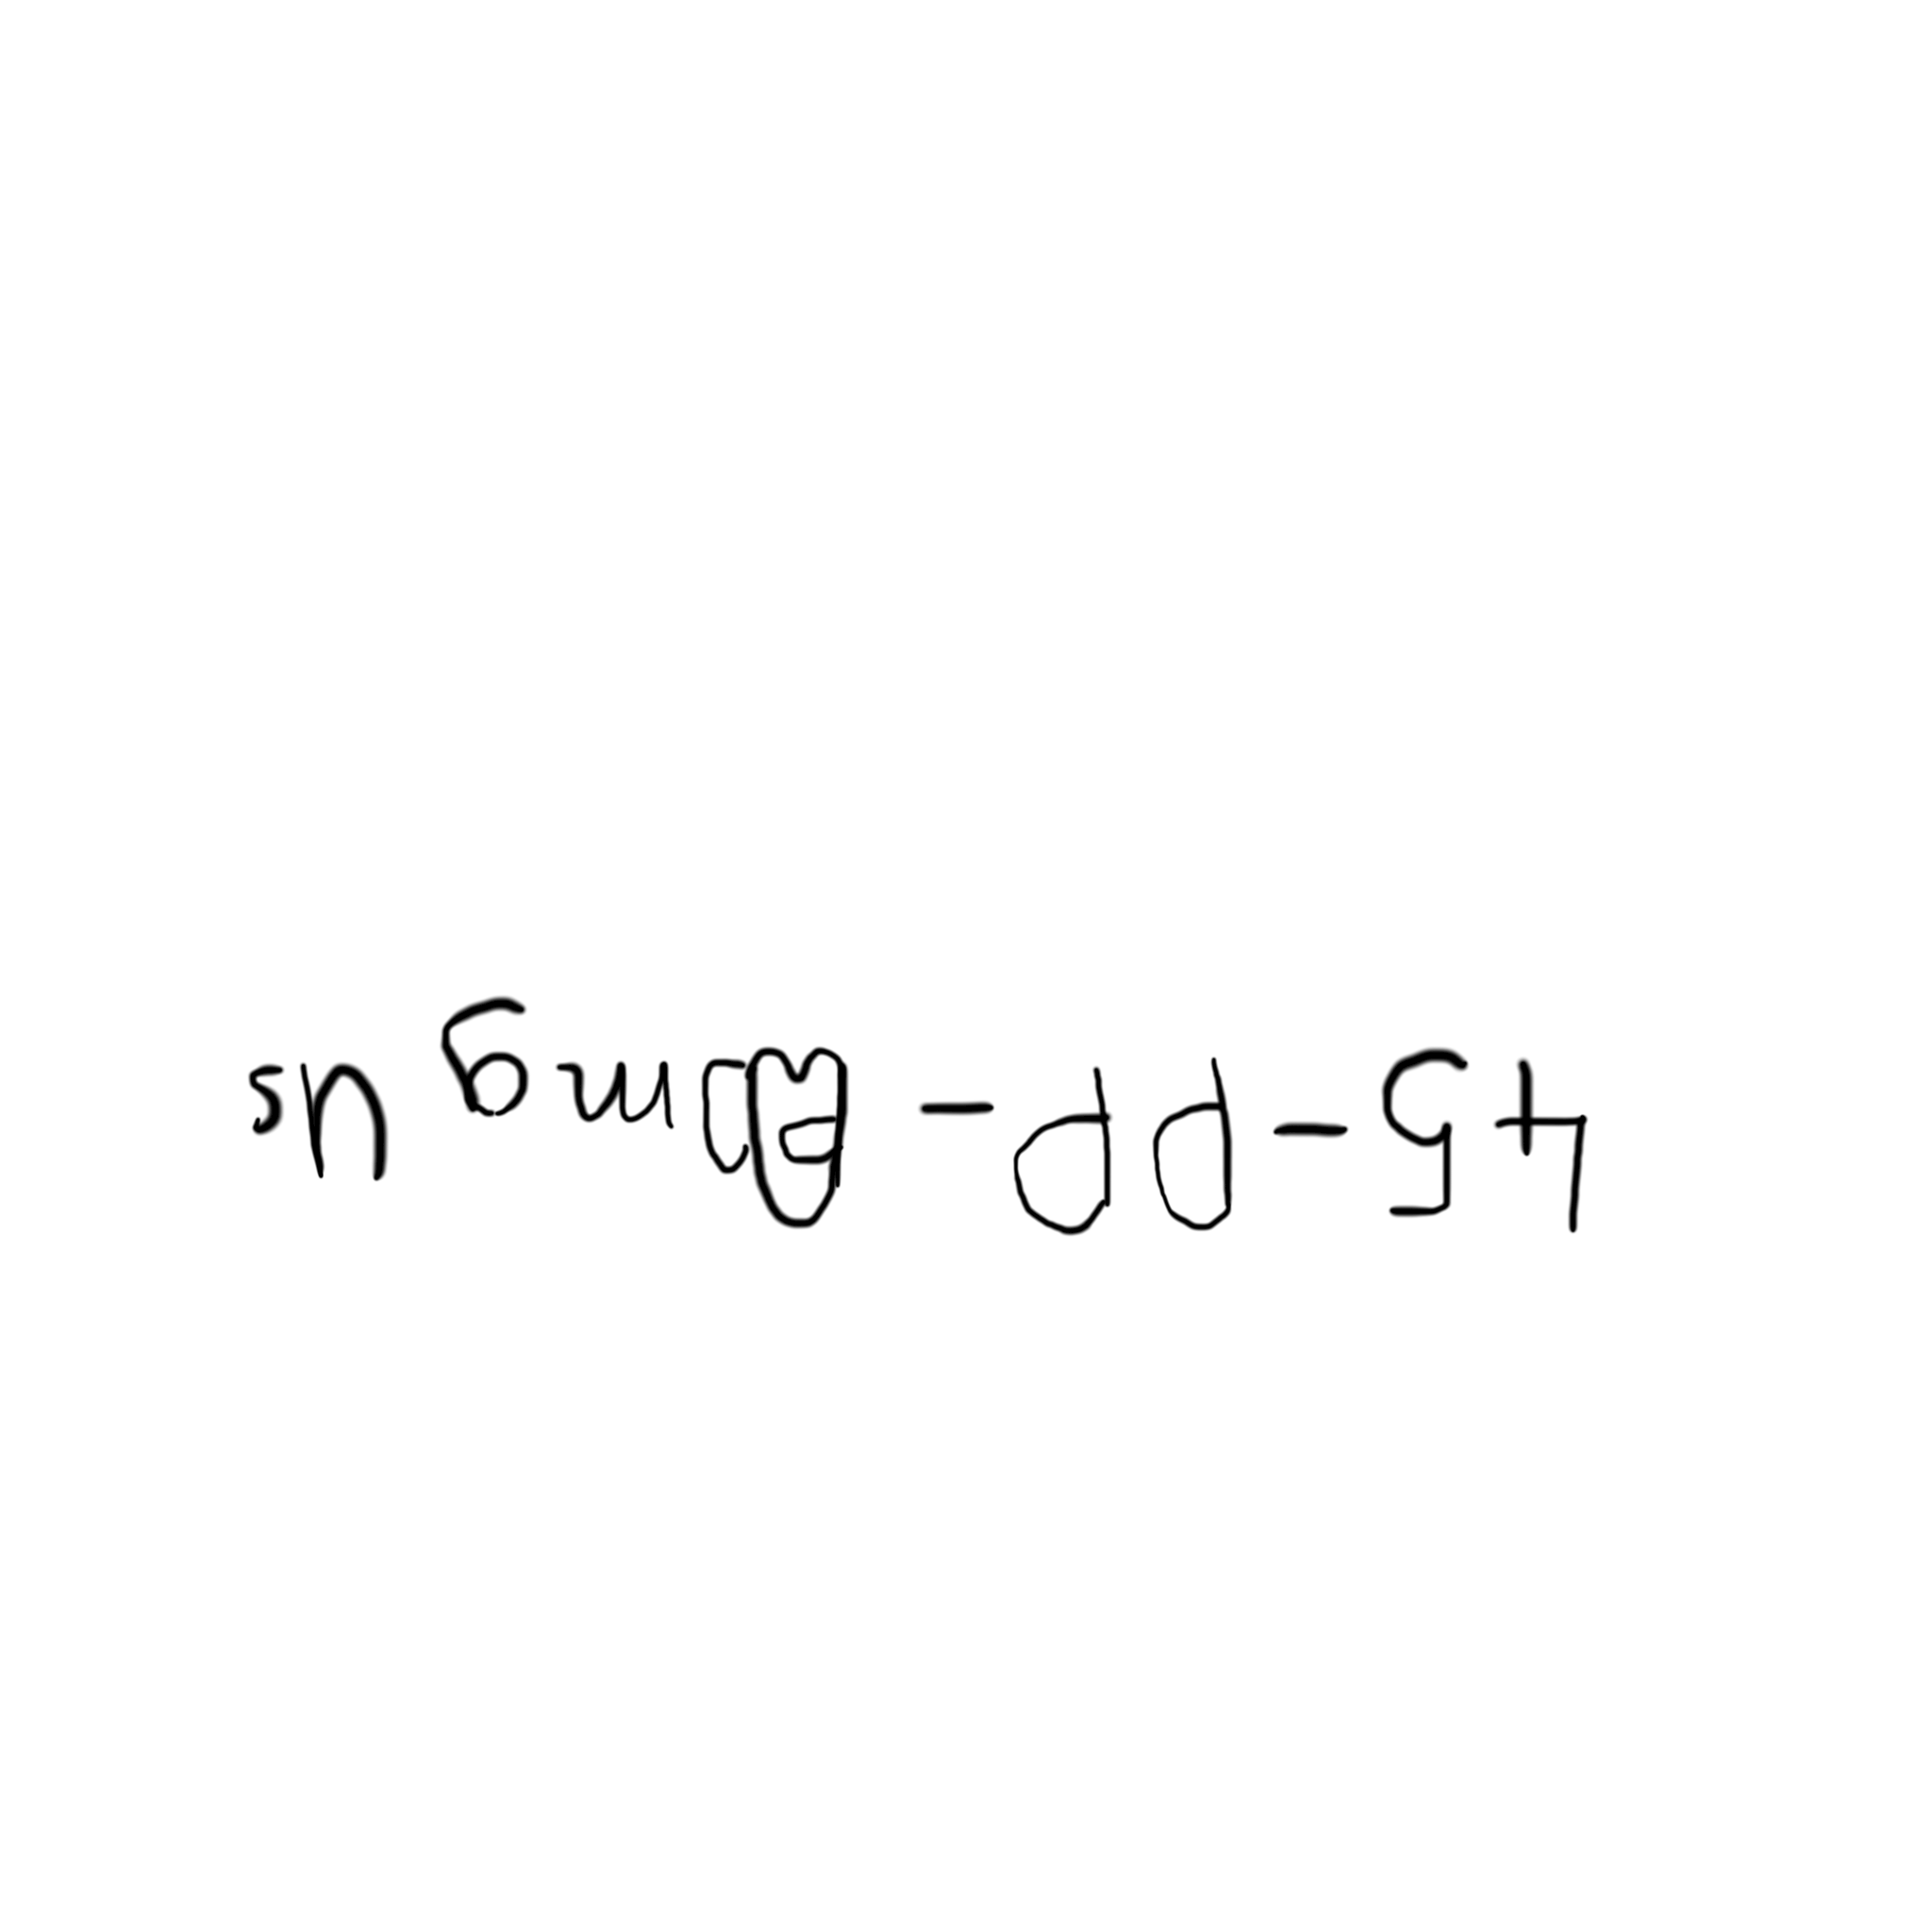 45-PP-ඞmgus